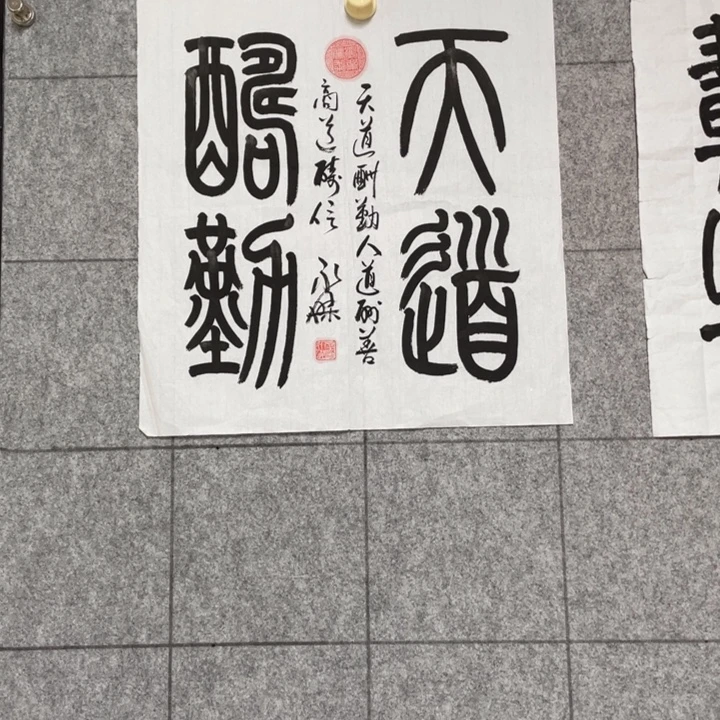 天道
天道酬勤人道酬善
商道酬信 永
酬勤